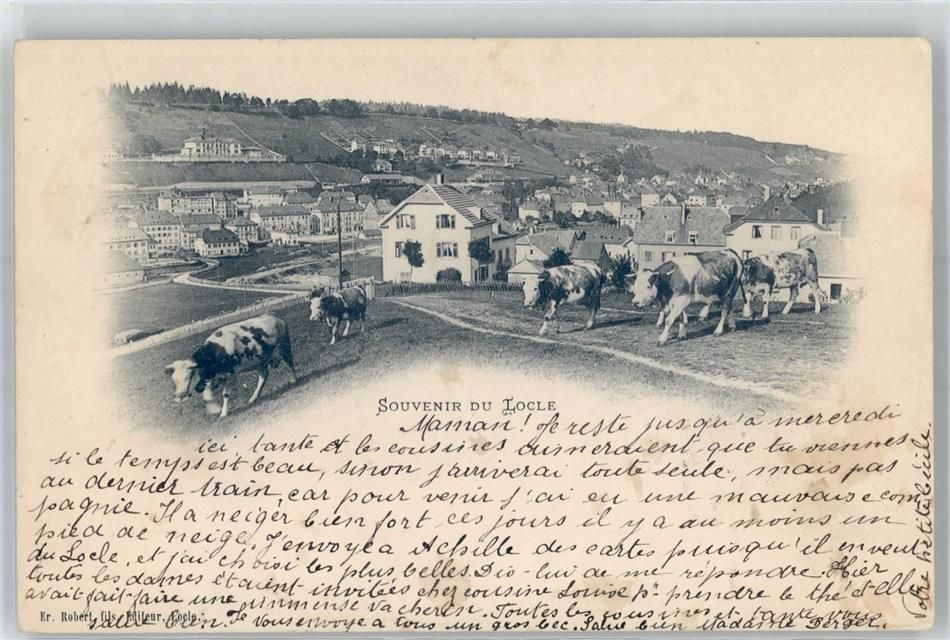 SOUVENIR DU LOCLE
Maman! Je reste jusqu'à mercredi
ici, tante et les cousines aimeraient que tu viennes
si le temps est beau, sinon j'arriverai toute seule, mais pas
au dernier train, car pour venir j'ai eu une mauvaise com
pagnie. Il a neiger bien fort ces jours il y a au moins un
pied de neige. J'envoye a Achille des cartes puisqu'il en veut
du Locle, et j'ai choisi les plus belles. Dis-lui de me répondre. Hier
toutes les dames étaient invitées chez cousine Louise pr prendre le thé et elle
avait fait faire une immense vacherin. Toutes les cousines et tante vous
salue bien. Je vous envoye a tous un gros bec. Salue bien Madame Berger.
Votre petite Cécile.
Er. Robert fils, Editeur, Locle.